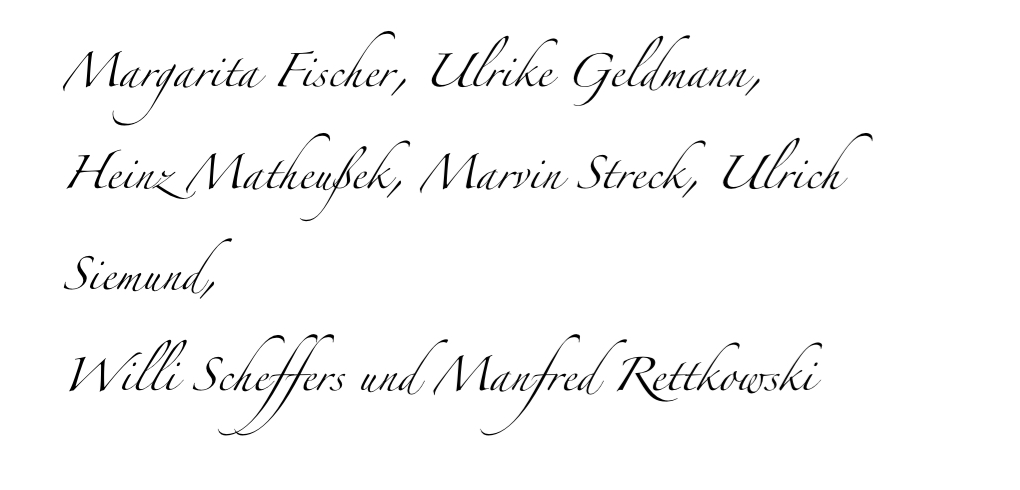 Margarita Fischer, Ulrike Geldmann,
Heinz Matheußek, Marvin Streck, Ulrich
Siemund,
Willi Scheffers und Manfred Rettkowski